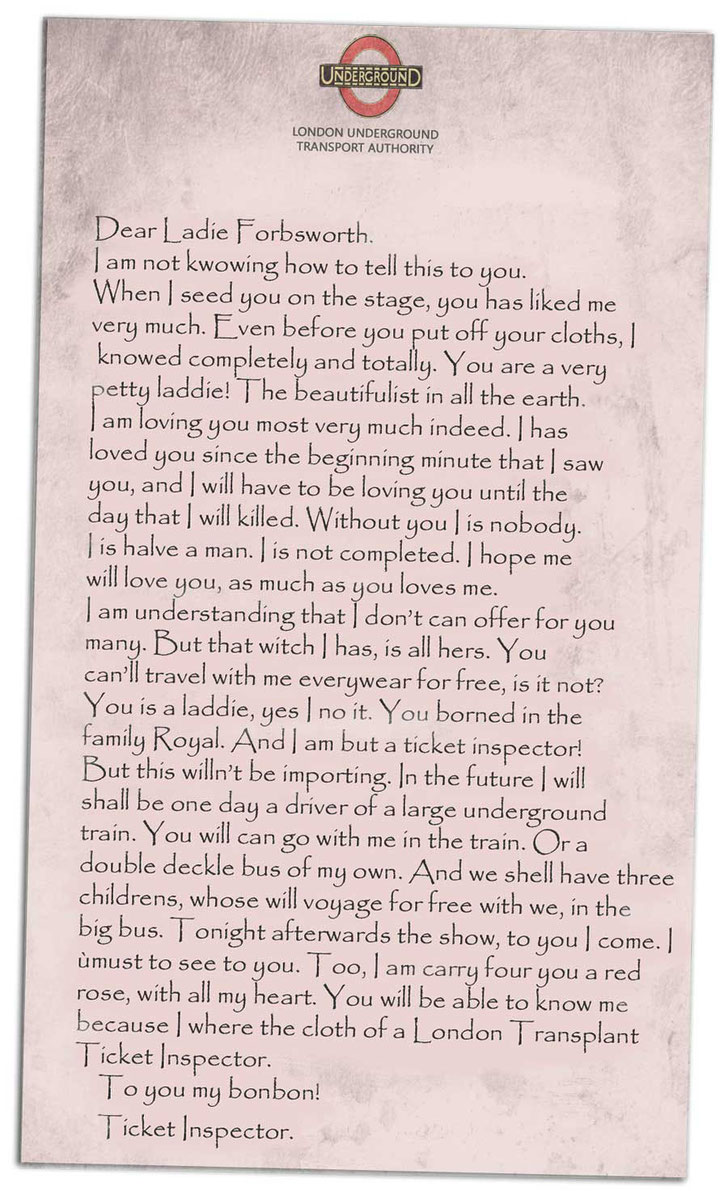 UNDERGROUND
LONDON UNDERGROUND
TRANSPORT AUTHORITY
Dear Ladie Forbsworth.
I am not kwowing how to tell this to you.
When I seed you on the stage, you has liked me
very much. Even before you put off your cloths, I
knowed completely and totally. You are a very
petty laddie! The beautifulist in all the earth.
I am loving you most very much indeed. I has
loved you since the beginning minute that I saw
you, and I will have to be loving you until the
day that I will killed. Without you I is nobody.
I is halve a man. I is not completed. I hope me
will love you, as much as you loves me.
I am understanding that I don't can offer for you
many. But that witch I has, is all hers. You
can'll travel with me everywear for free, is it not?
You is a laddie, yes I no it. You borned in the
family Royal. And I am but a ticket inspector!
But this willn't be importing. In the future I will
shall be one day a driver of a large underground
train. You will can go with me in the train. Or a
double deckle bus of my own. And we shell have three
childrens, whose will voyage for free with we, in the
big bus. Tonight afterwards the show, to you I come. I
ùmust to see to you. Too, I am carry four you a red
rose, with all my heart. You will be able to know me
because I where the cloth of a London Transplant
Ticket Inspector.
To you my bonbon!
Ticket Inspector.